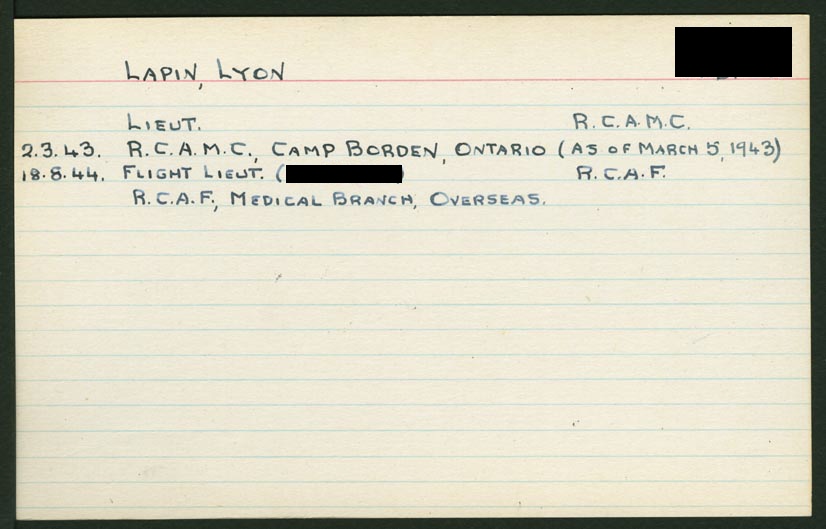 LAPIN, LYON
LIEUT. R.C.A.M.C.
2.3.43. R.C.A.M.C., CAMP BORDEN, ONTARIO (AS OF MARCH 5, 1943)
18.8.44. FLIGHT LIEUT. ( ) R.C.A.F.
R.C.A.F., MEDICAL BRANCH, OVERSEAS.